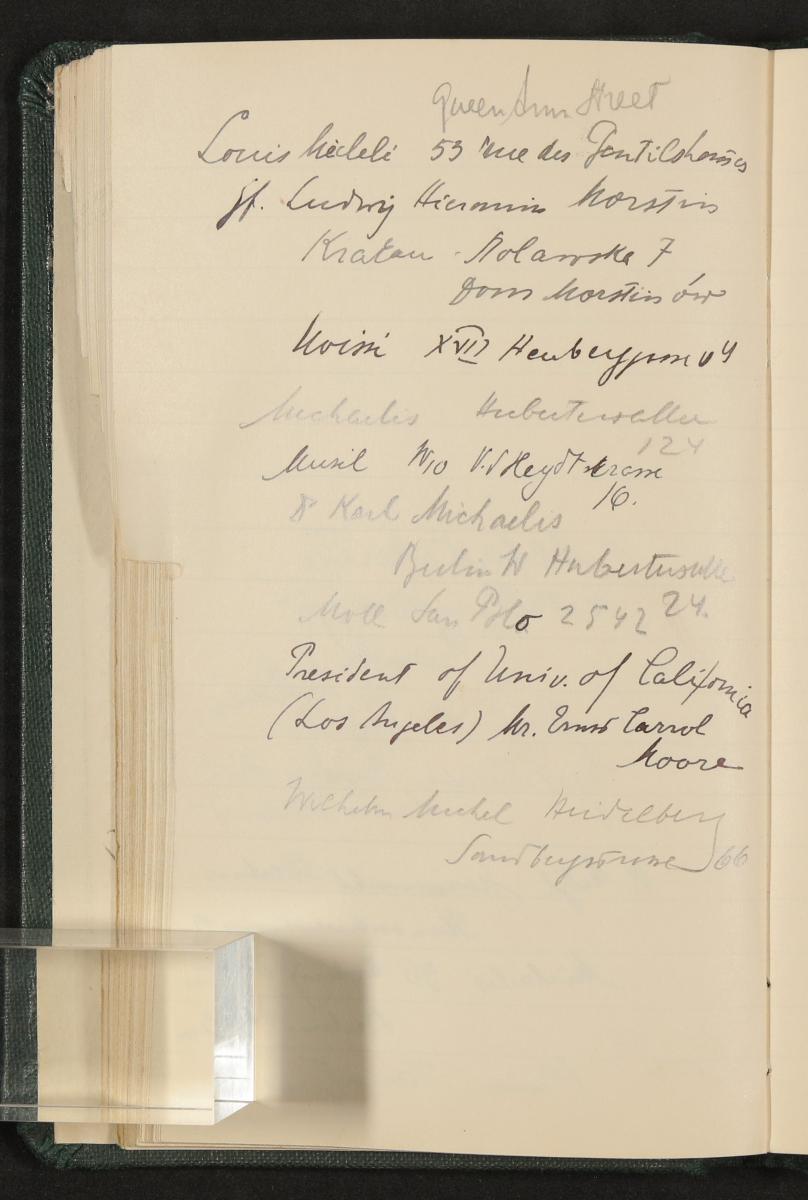 Queen Ann Street
Louis Micheli 53 rue des Gentilshommes
Gf. Ludwig Hieronim Morstin
Krakau 7
Dom Morstinów
Moissi XVII 4
Michaelis Hubertusallee
124
Musil W10 V. d Heydtstrasse
16.
Dr Karl Michaelis
Berlin W Hubertusallee
24.
Moll San Polo 2542
President of Univ. of California
(Los Angeles) Mr. Ernst Carrol
Moore
Wilhelm Michel Heidelberg
66